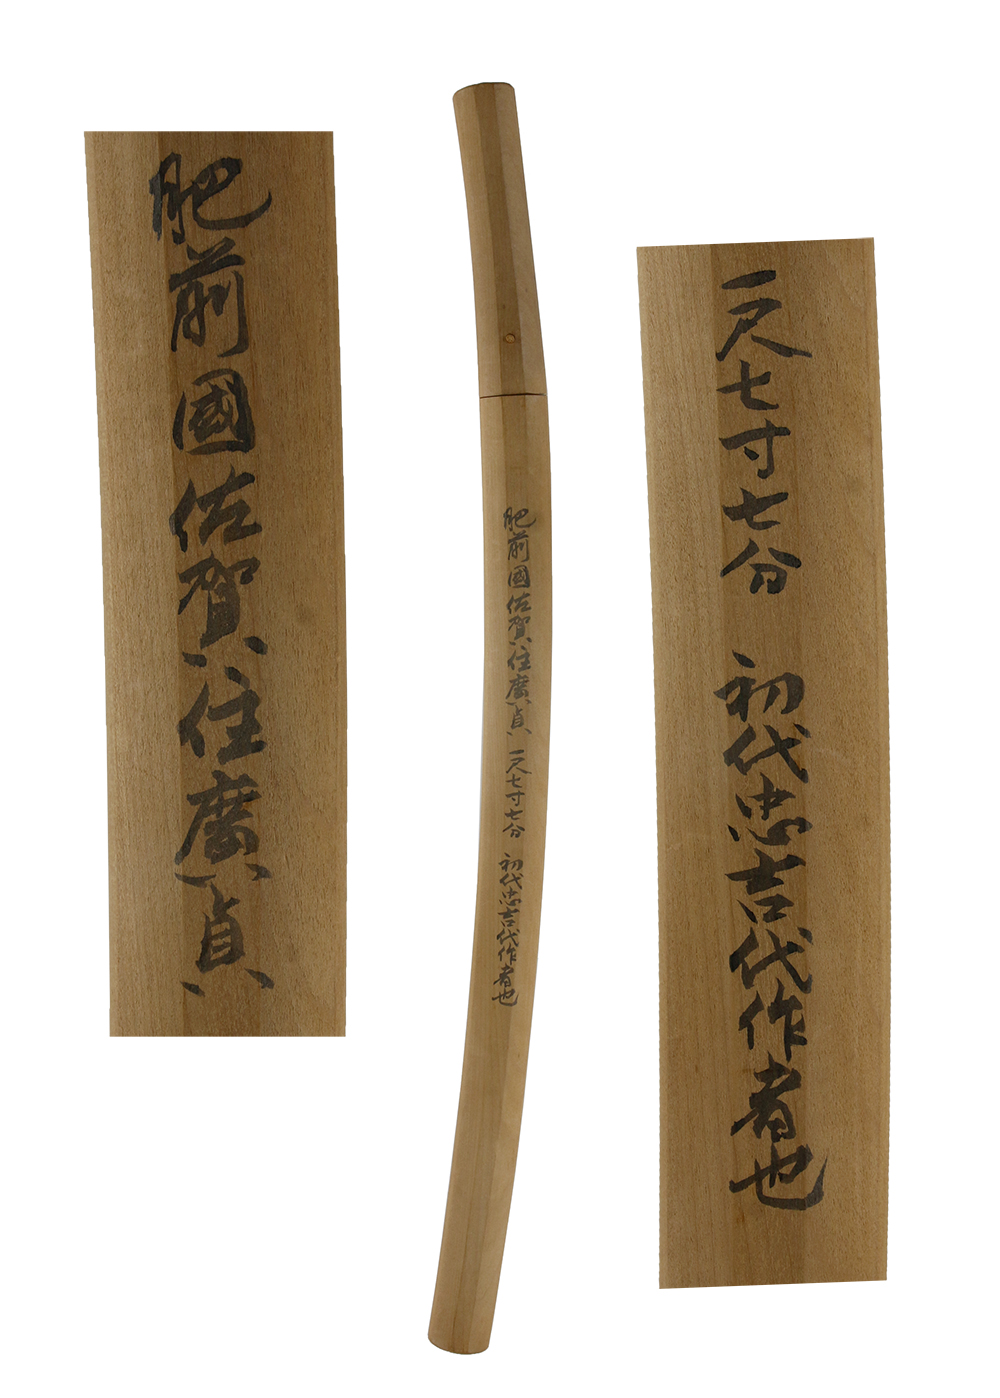 肥前國佐賀住廣貞
肥前國佐賀住廣貞 一尺七寸七分 初代忠吉代作者也
一尺七寸七分 初代忠吉代作者也